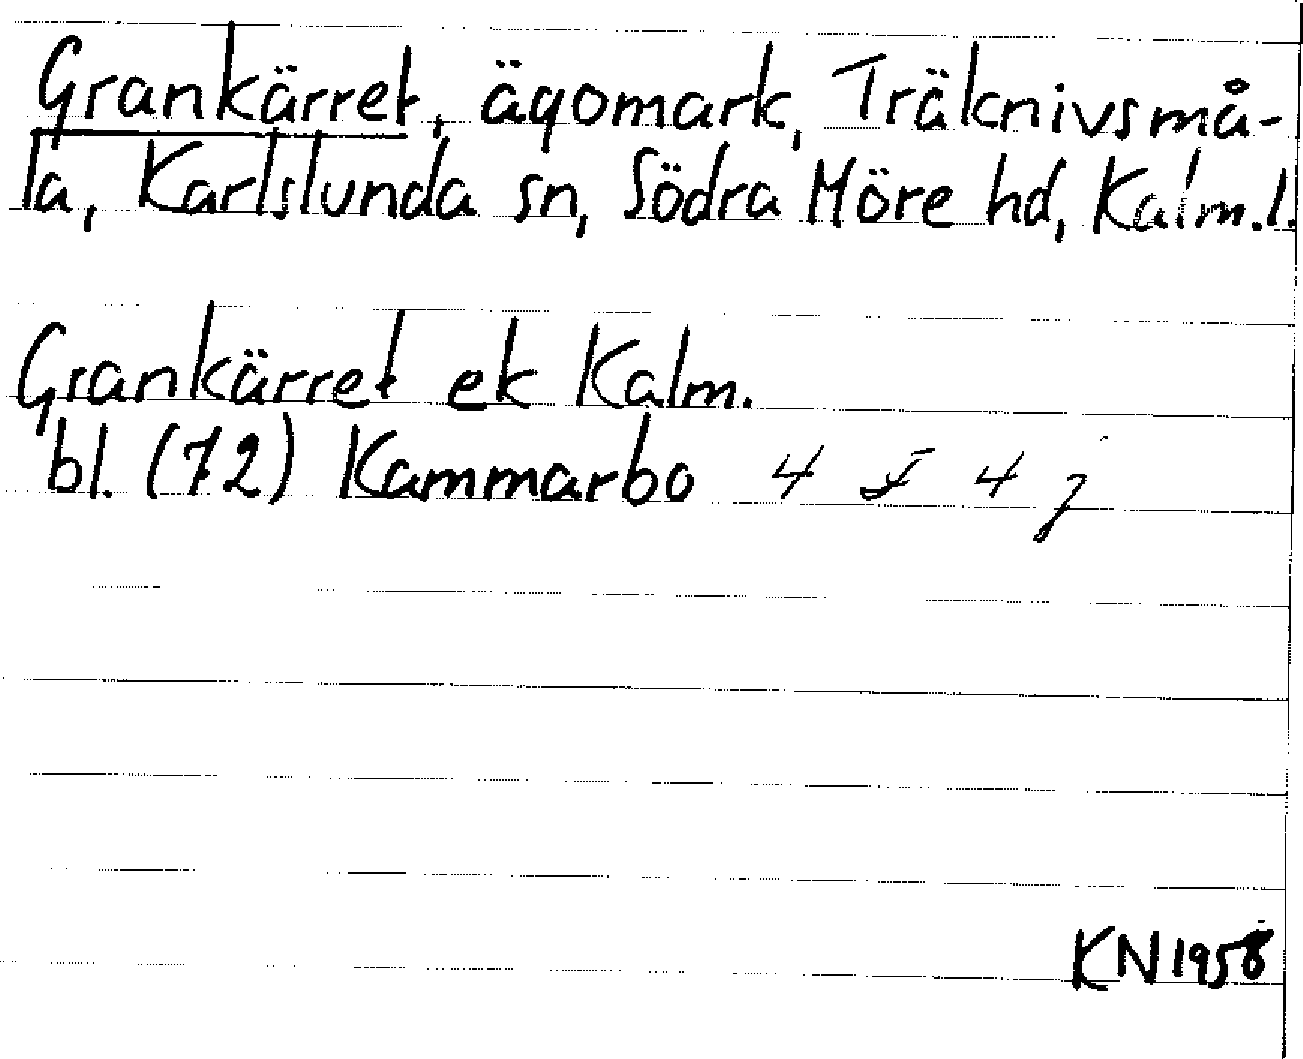 Grankärret, ägomark, Träknivsmå-
la, Karlslunda sn, Södra Möre hd, Kalm.l.
Grankärret ek Kalm.
bl. (72) Kammarbo 4 I 4 j
KN 1958